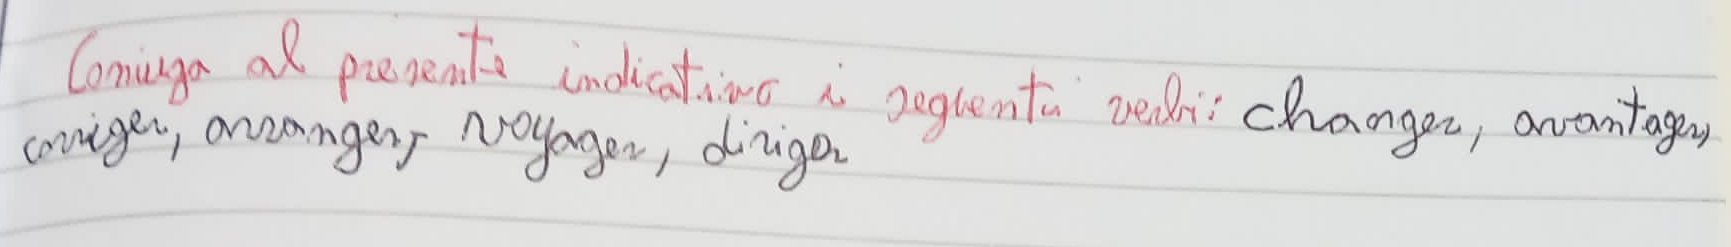 Coniuga al presente indicativo i seguenti verbi: changer, avantager,
corriger, arranger, voyager, diriger